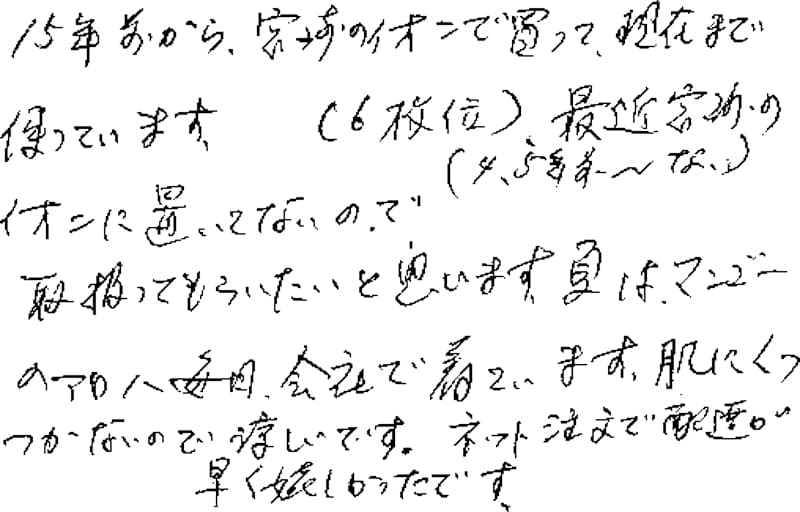 15年前から、宮崎のイオンで買って、現在まで
使っています。 (6枚位) 最近宮崎の
(4、5年前〜ない)
イオンに置いてないの、で
取扱ってもらいたいと思います。夏は、マンゴー
のアロハ毎日、会社で着ています。肌にくっ
つかないので涼しいです。ネット注文で配達が
早く嬉しかったです。